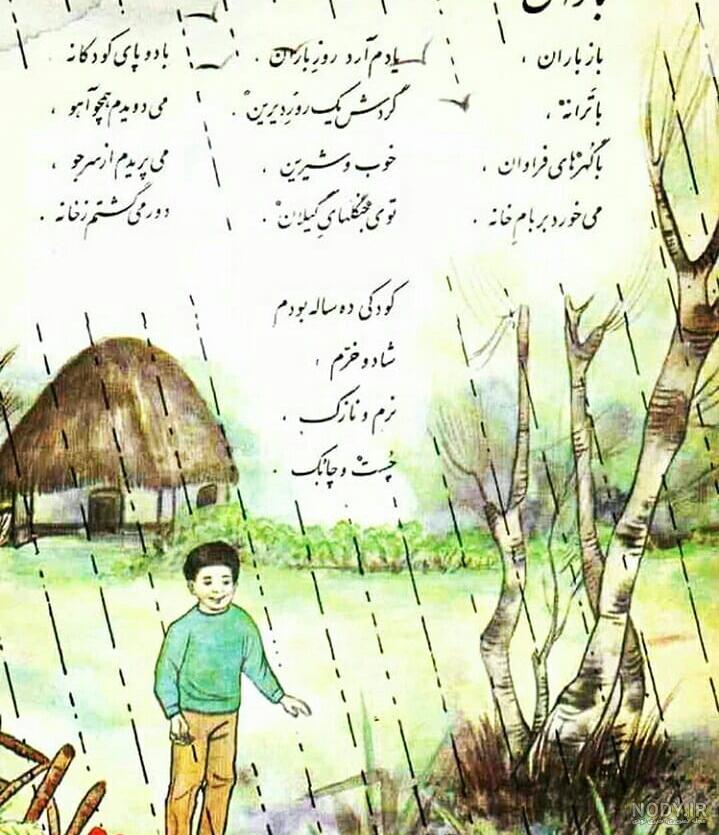 باران
باز باران ،
با ترانه ،
با گهرهای فراوان ،
می خورد بر بام خانه .
یادم آرد روز باران .
گردش یک روز دیرین .
خوب و شیرین .
توی جنگلهای گیلان .
کودکی ده ساله بودم
شاد و خرّم ،
نرم و نازک ،
چُست و چابک .
با دو پای کودکانه
می دویدم همچو آهو ،
می پریدم از سر جو ،
دور می گشتم ز خانه .
NODY.IR